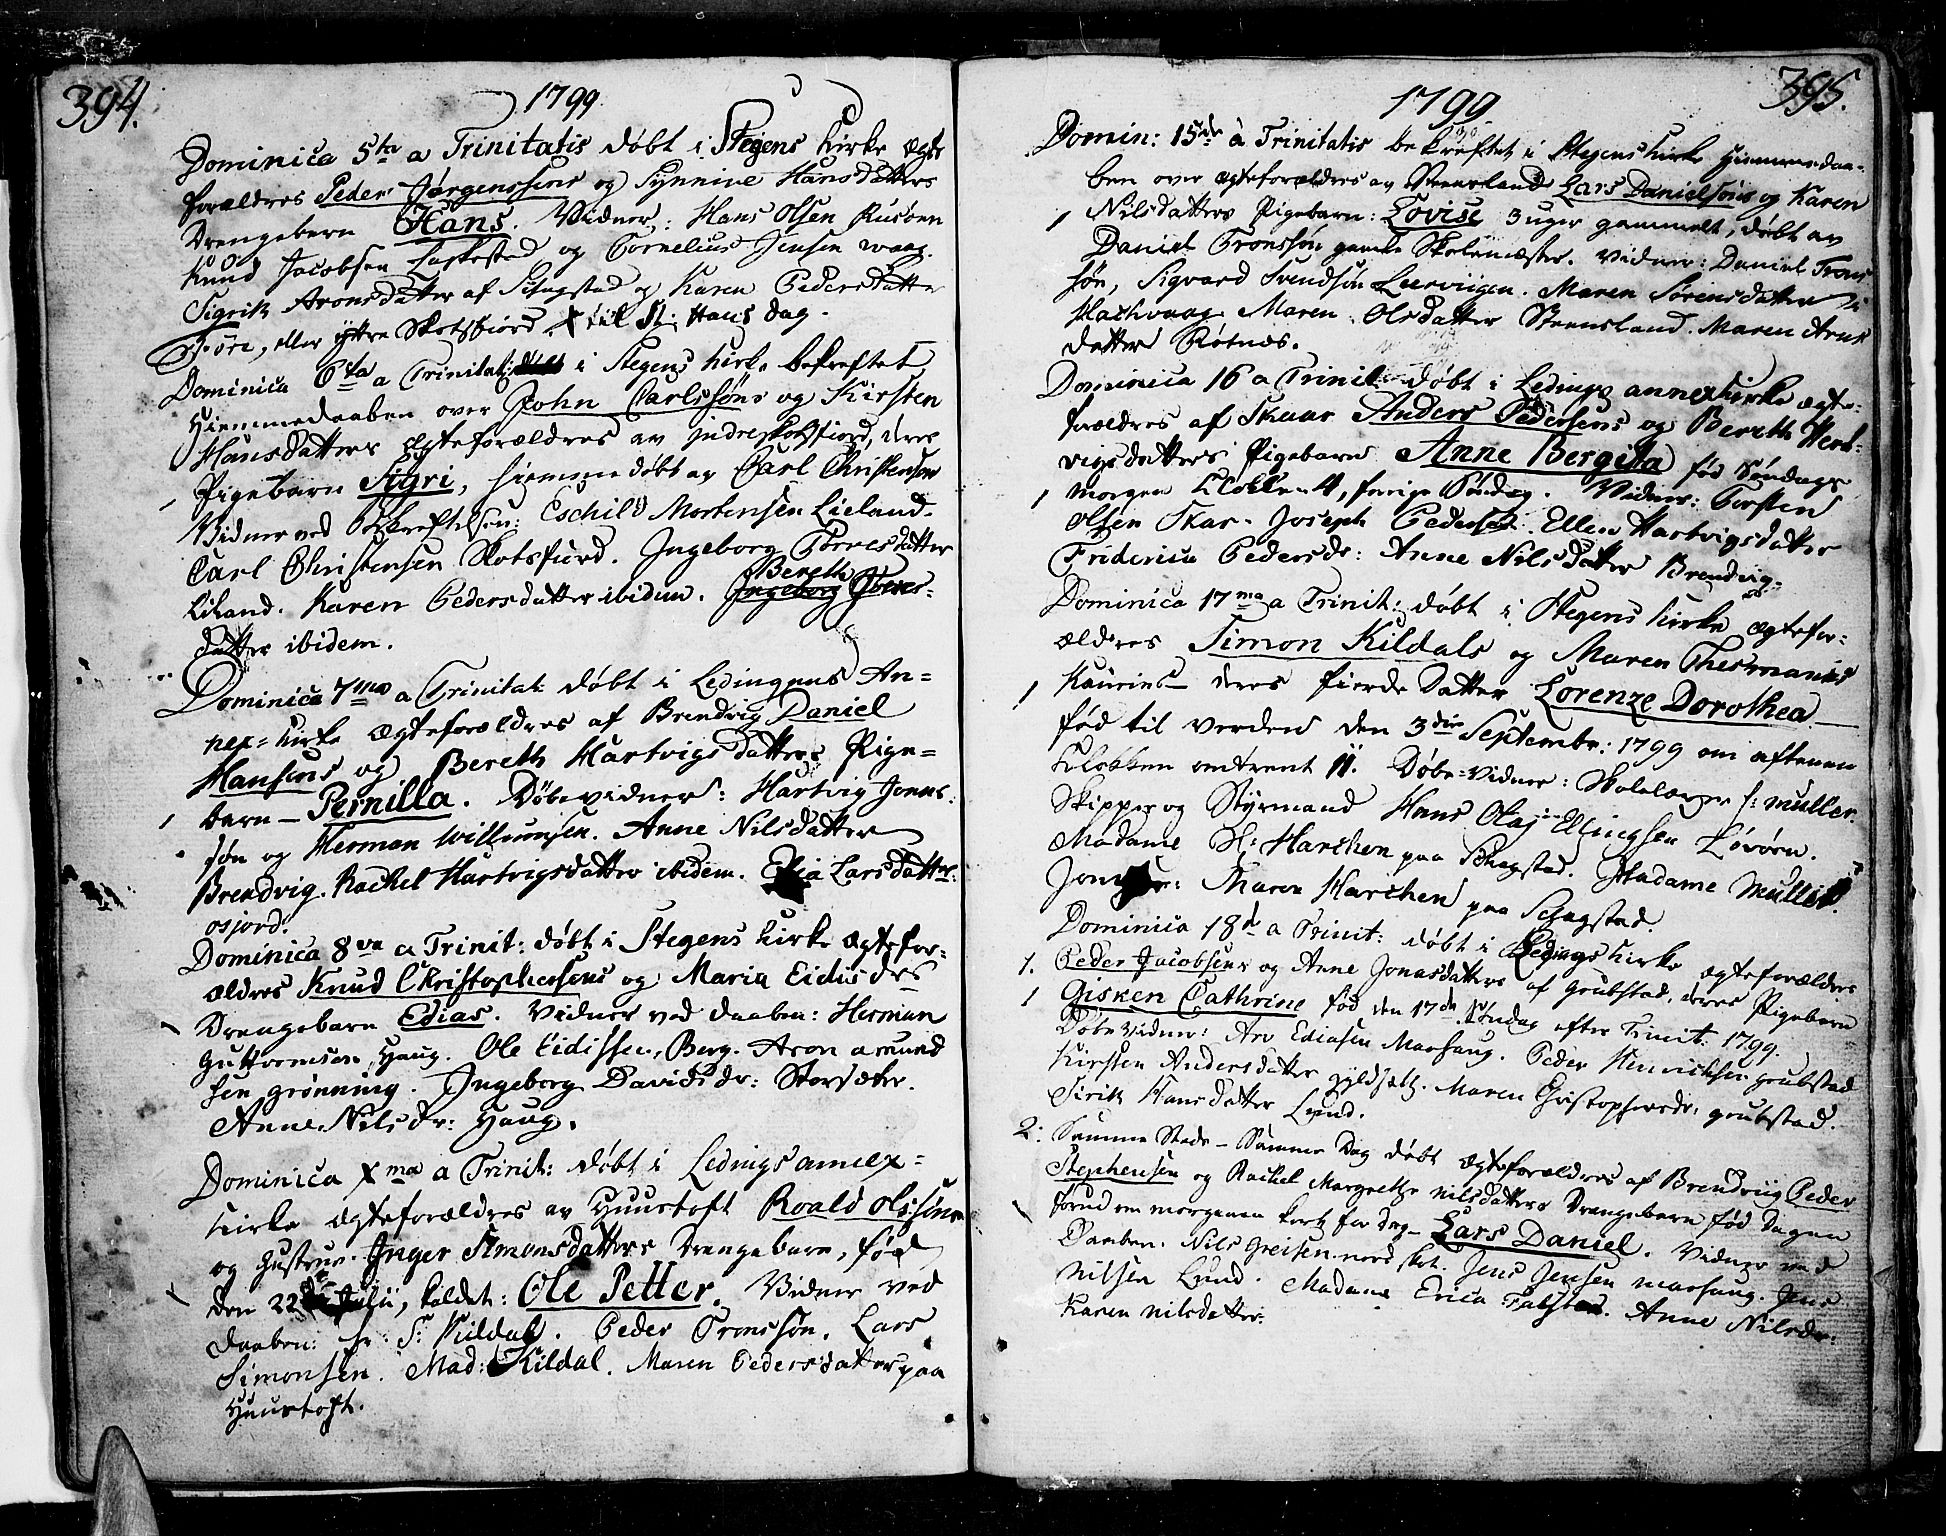 394.
1799
Dominica 5ta a Trinitatis døbt i Stegens Kirke ægte
forældres Peder Jørgenssens og Synnive Hansdatters
Drengebarn Hans. Vidner: Hans Olsen
Knud Jacobsen og Cornelius Jensen waag.
Sigrik Aronsdatter af Schagstad og Karen Pedersdatter
eller yttre Skotsfiord til St: Hans dag.
Dominica 6ta a Trinitatis i Stegens Kirke bekreftet
Hiemmedaaben over John Carlssøns og Kirsten
Hansdatters ægteforældres av indre Skotsfiord, deres
Pigebarn Sigri, hiemmedøbt av Carl Christensen
Vidner ved Bekreftelsen: Eschild Mortensen Lieland.
Carl Christensen Skotsfiord. Ingeborg Torresdatter
Liland. Karen Pedersdatter ibidem. Bereth Torres=
datter ibidem.
Dominica 7ma a Trinitat: døbt i Ledingens An=
nex=Kirke ægteforældres af Brendvig Daniel
Hansens og Bereth Hartvigsdatters Pige=
barn - Pernilla. Døbevidner: Hartvig Jonas=
1
søn og Herman Willumsen. Anne Nilsdatter
Brendvig. Rachel Hartvigsdatter ibidem. Larsdatter
osjord.
Dominica 8va a Trinit: døbt i Stegens Kirke ægtefor=
ældres Knud Christophersens og Maria Eidisdrs
Drengebarn Edias. Vidner ved daaben: Herman
Guttormsen Haug. Ole Eidissen, Berg. Aron amund
sen grønning. Ingeborg Davidsdr: Storsæter.
Anne Nilsdr: Haug.
Dominica Xma a Trinit: døbt i Ledings annex=
Kirke ægteforældres av Huustoft Roald Olssøns
og Hustrue Inger Simonsdatters Drengebarn, fød
den 22 Julii, kaldet: Ole Petter. Vidner ved
daaben: hr S: Kildal. Peder Tronssøn. Lars
Simonsen. Mad: Kildal. Maren Pedersdatter paa
Huustoft.
395.
1799
Domin: 15de a Trinitatis bekreftet i Stegens Kirke Hiemmedaa=
ben over ægteforældres av Lars Danielsøns og Karen
1 Nilsdatters Pigebarn: Lovise 3 uger gammelt, døbt av
Daniel Tronssøn gamle Skolemester. Vidner: Daniel Trons
søn, Sigvard Svendsøn Leerviigen. Maren Sørensdatter i
Maren Olsdatter Steensland. Maren Arns
datter Røtnes.
Dominica 16 a Trinit: døbt i Ledings annex Kirke ægte=
forældres af Skaar Anders Pedersens og Bereth Hert=
vigsdatters Pigebarn Anne Bergitta fød Søndags
1 morgen Klokken 4, forrige Søndag. Vidner: Torsten
Olsen Skar. Joseph Pedersen. Ellen Hartvigsdatter
Friderica Pedersdr: Anne Nilsdatter Brendvig.
Dominica 17ma a Trinit: døbt i Stegens Kirke ægtefor=
ældres Simon Kildals og Maren
1 Kaurins deres fierde Datter Lorenze Dorothea
fød til verden den 3die Septembr: 1799 om aftenen
Klokken omtrent 11. Døbe=Vidner: Skolelærer muller.
Skipper og Styrmand Hans Olaj Ellingsen Løvøen.
Madame H: Harchen paa Schagstad. Madame Muller.
Maren Harchen paa Schagstad.
Dominica 18d a Trinit: døbt i Ledings Kirke ægteforældres
1. Peder Jacobsens og Anne Jonasdatters af Grubstad, deres Pigebarn
1 Gisken Cathrine fød den 17de Søndag efter Trinit: 1799.
Døbe Vidner: Arv Ediasen Marhaug. Peder Henrichsen grubstad
Kirsten Andersdatter Maren Christophersdr: grubstad.
Sirik Hansdatter Lund.
2: Samme Stade - Samme Dag døbt ægteforældres af Brendviig Peder
Stephensen og Rachel Margrethe Nilsdatters Drengebarn fød Dagen
forud om morgenen kort før dag - Lars Daniel. Vidner ved
Daaben. Nils Greisen nordskot. Jens Jensen marhaug. Jens
Nilsen Lund. Madame Erica Falster. Anne Nilsdr:
Karen Nilsdatter.